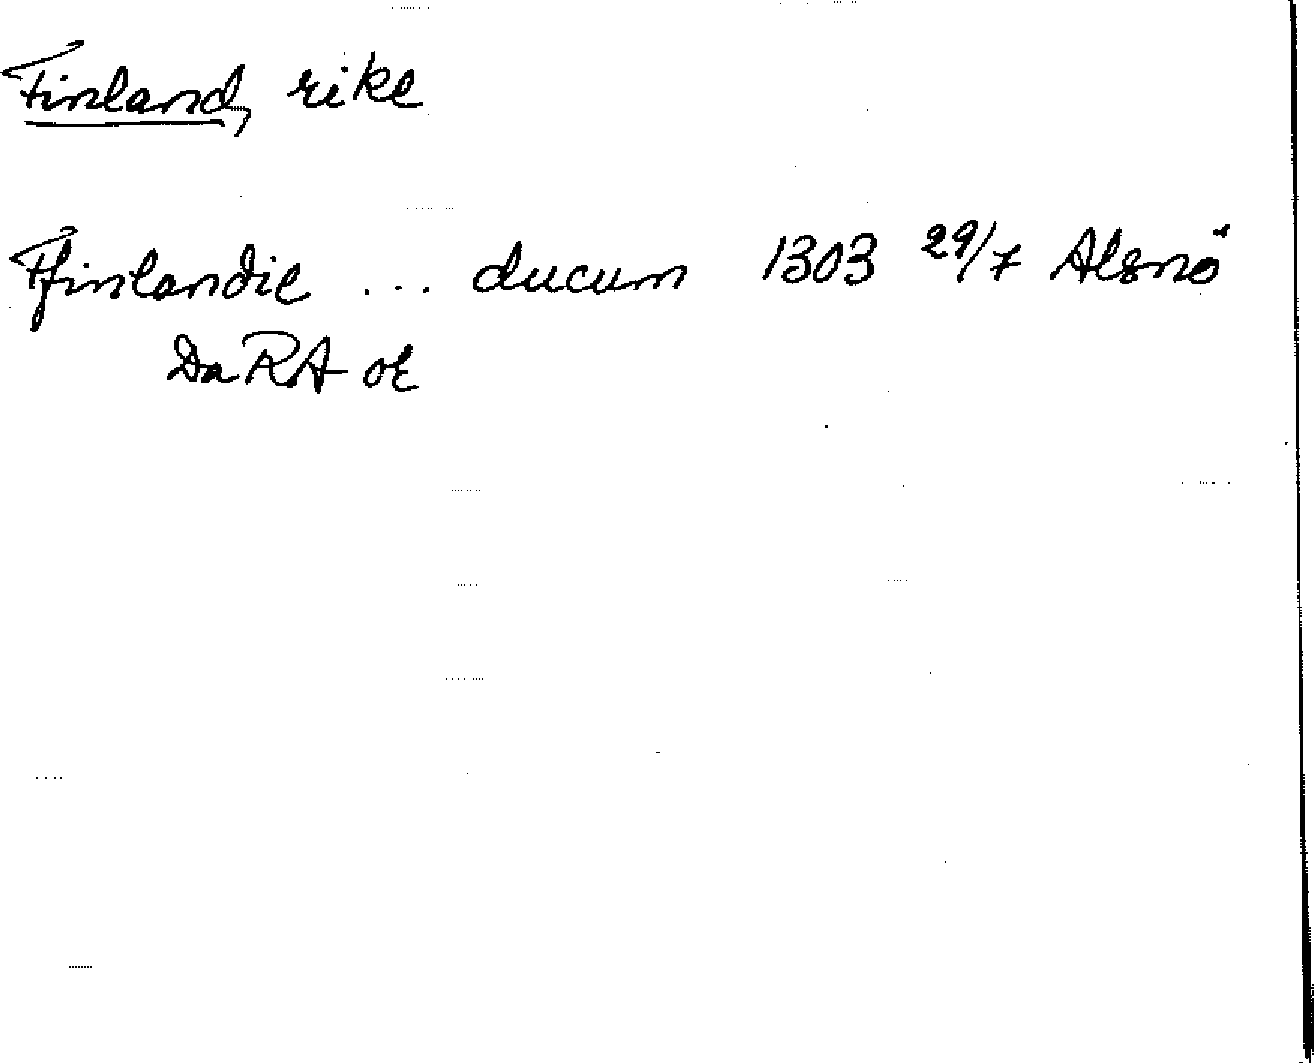 Finland, rike
Ffinlandie ... ducum 1303 29/7 Alsnö
DaRA or